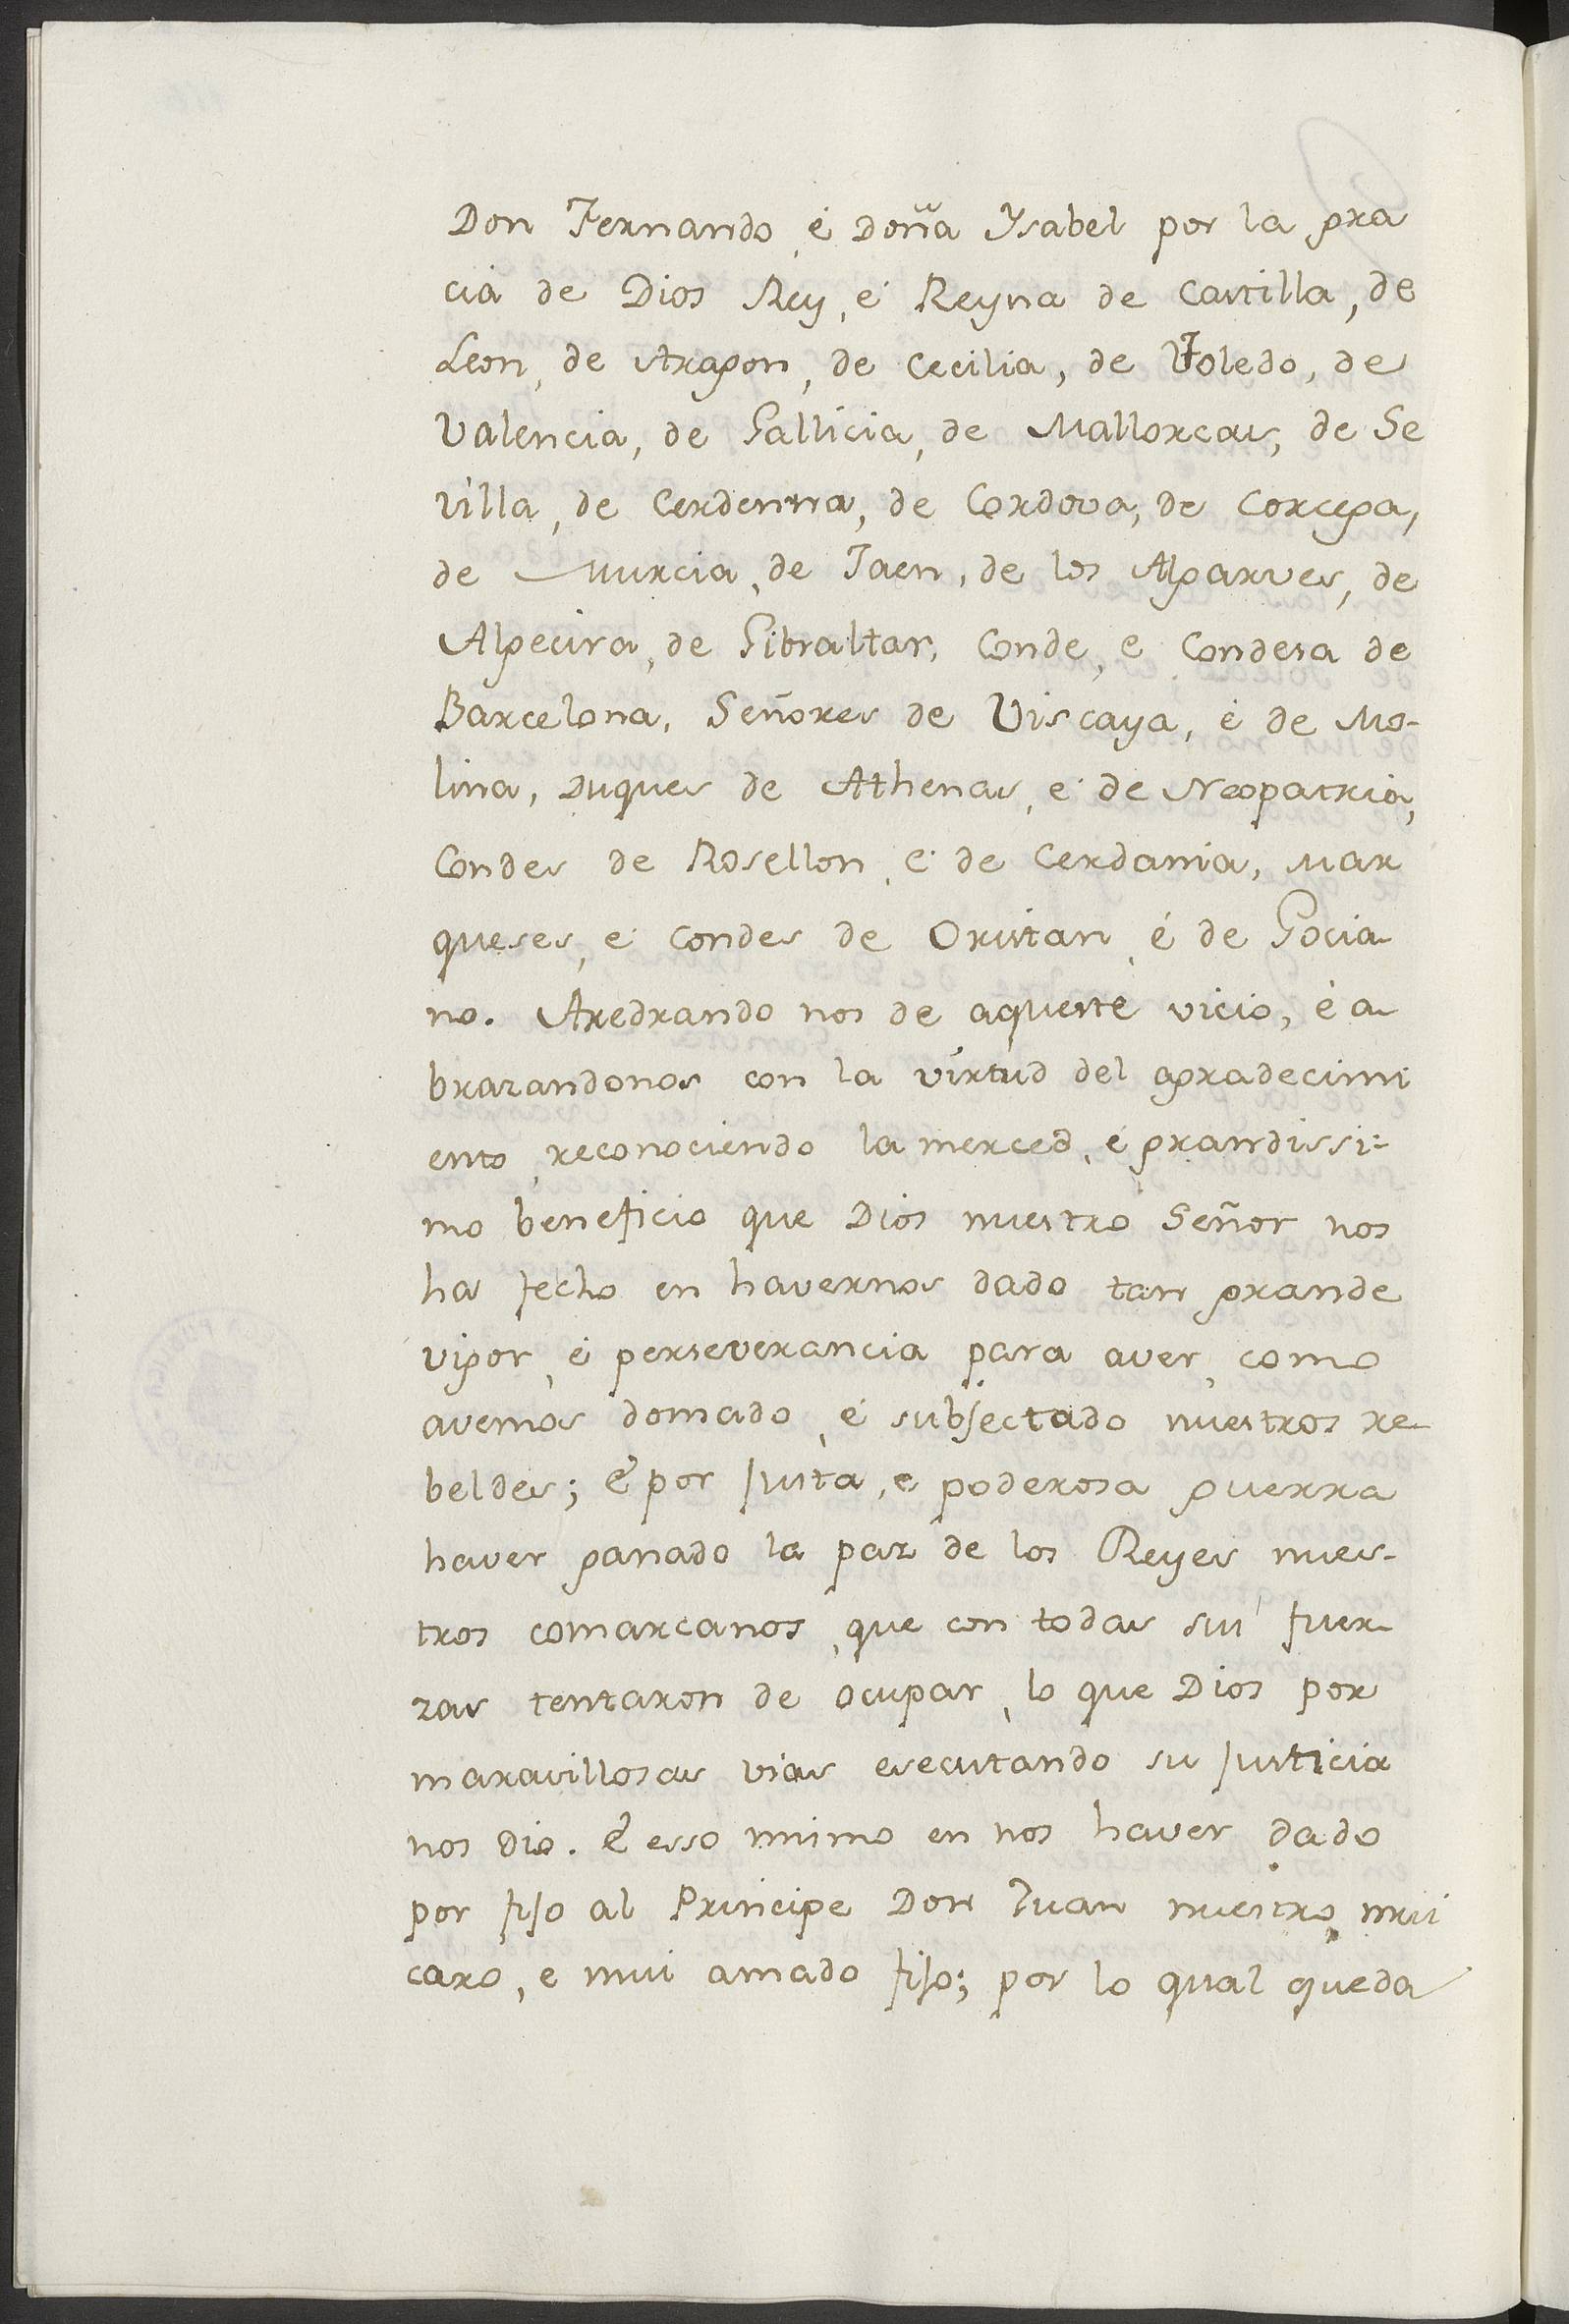 Don Fernando, é Doña Ysabel por la gra
cia de Dios Rey, é Reyna de Castilla, de
Leon, de Aragon, de Cecilia, de Toledo, de
Valencia, de Gallicia, de Mallorcas, de Se
villa, de Cerdenna, de Cordova, de Corcega,
de Murcia, de Jaen, de los Algarves, de
Algecira, de Gibraltar, Conde, e Condesa de
Barcelona, Señores de Viscaya, é de Mo-
lina, Duques de Athenas, é de Neopatria,
Condes de Rosellon, é de Cerdania, Mar
queses, e Condes de Oristan, é de Gocia-
no. Aredrando nos de aqueste vicio, é a-
brazandonos con la virtud del agradecimi
ento, reconociendo la merced, é grandissi-
mo beneficio que Dios nuestro Señor nos
ha fecho en havernos dado tan grande
vigor, é perseverancia para aver, como
avemos domado, é subjectado nuestros re-
beldes; é por justa, e poderosa guerra
haver ganado la paz de los Reyes nues-
tros comarcanos, que con todas sus fuer-
zas tentaron de ocupar, lo que Dios por
maravillosas vias esecutando su justicia
nos dio. É esso mismo en nos haver dado
por fijo al Principe Don Juan nuestro, mui
caro, e mui amado fijo; por lo qual queda